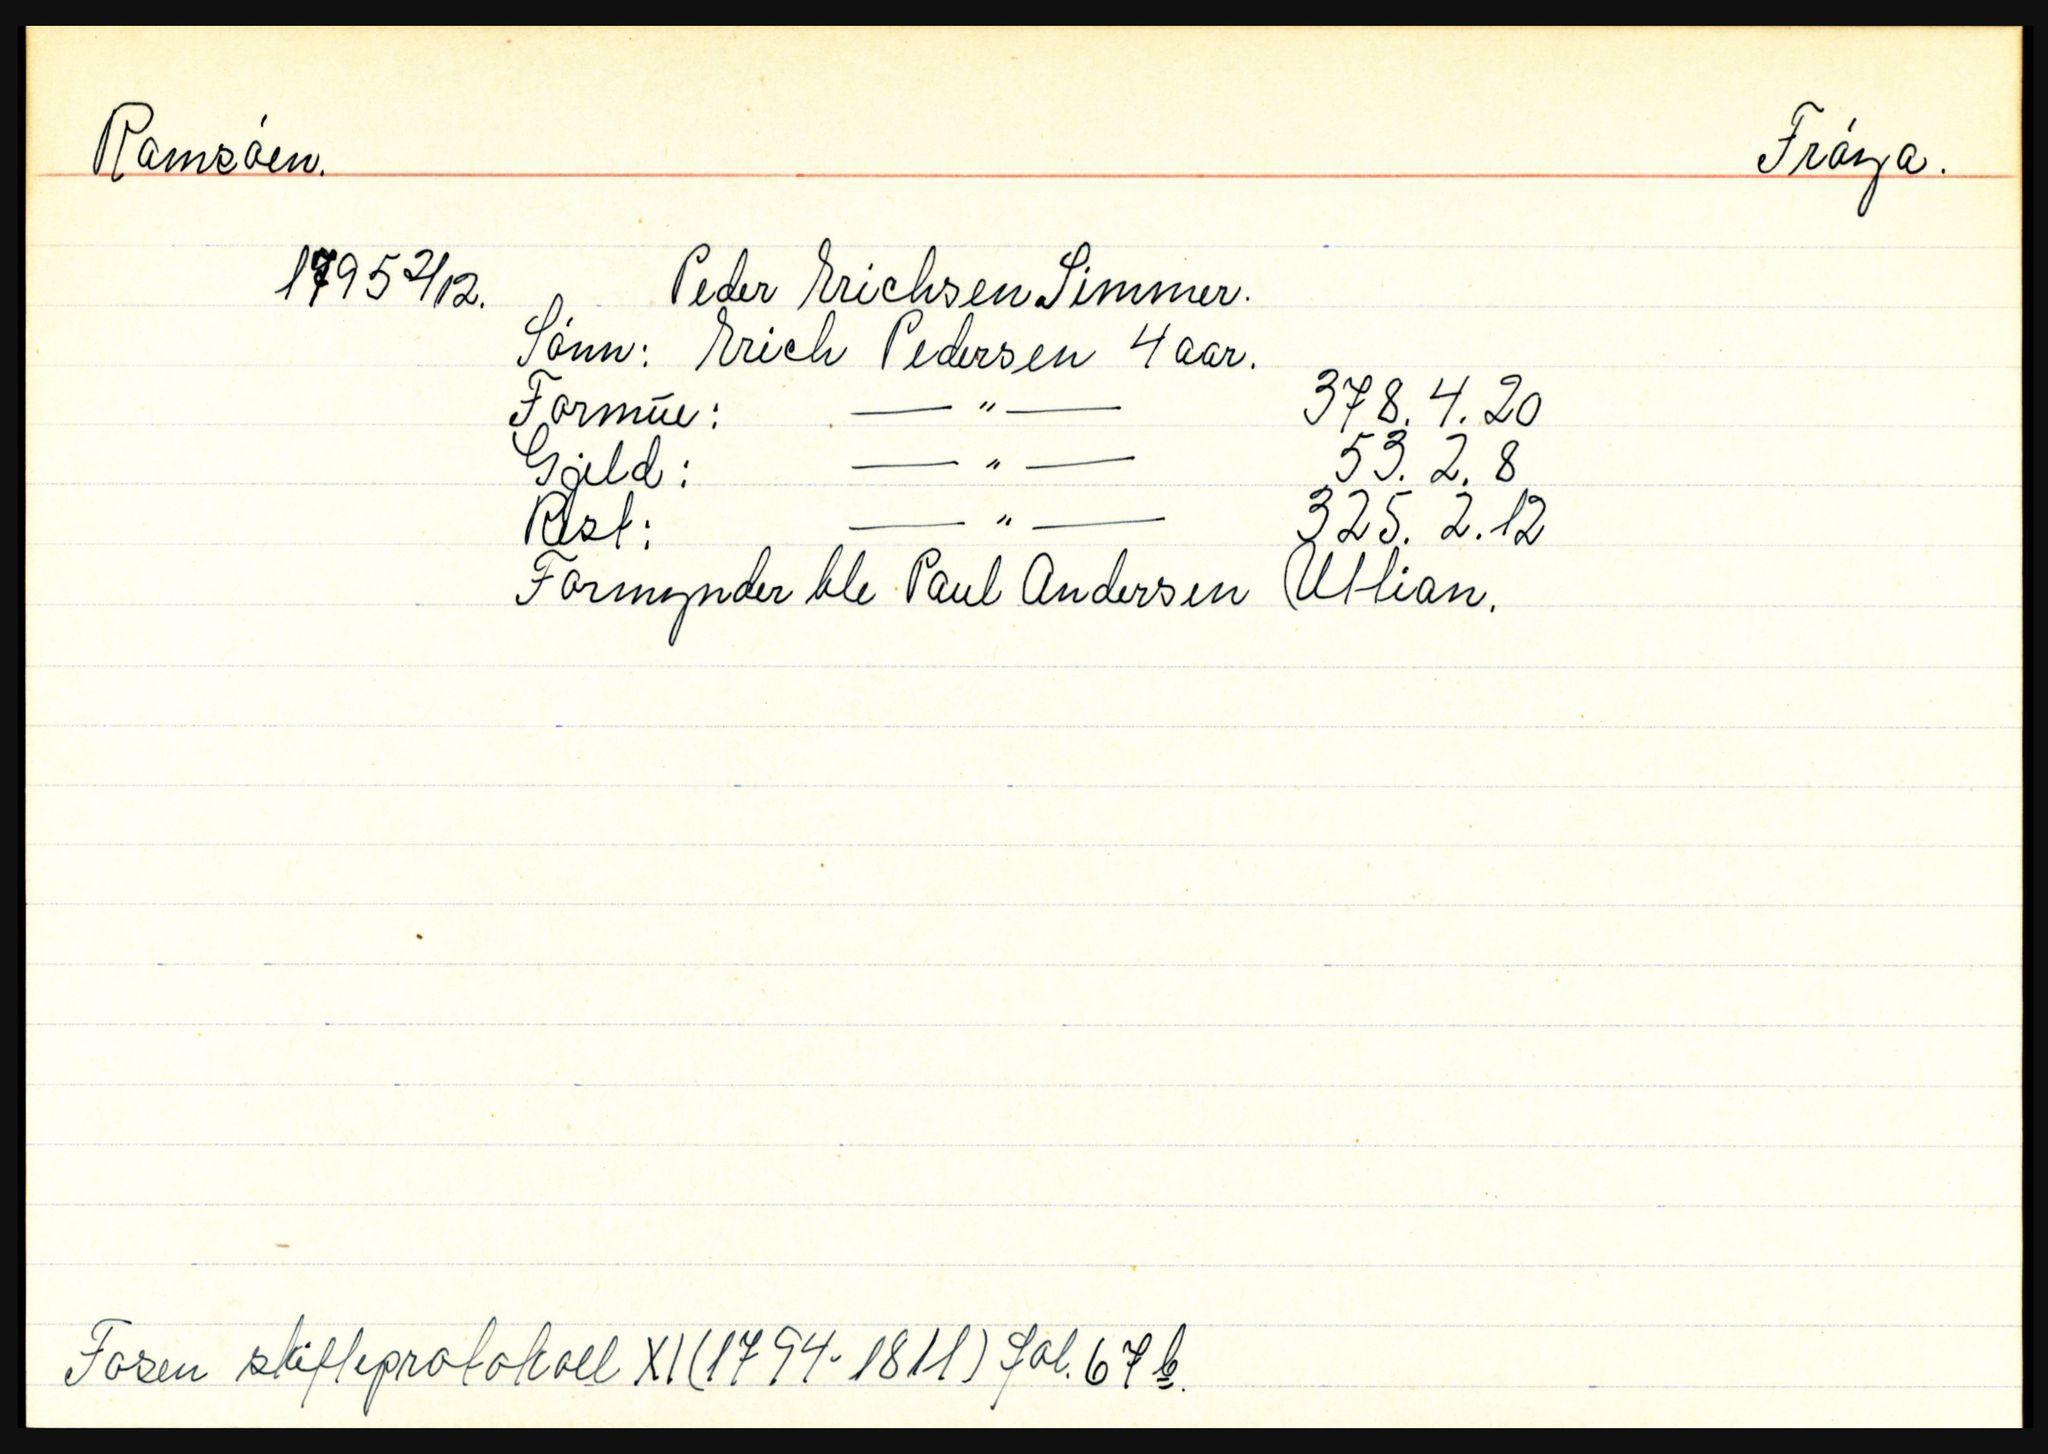 Ramsóen. Fróya.
1795 2/12. Peder Erichsen Simmer.
Sónn: Erich Pedersen 4 aar.
Formúe: — " — 378. 4. 20
Gjeld: — " — 53. 2. 8
Rest: — " — 325. 2. 12
Formynder ble Paul Andersen Uttian.
Fosen skifteprotokoll XI (1794-1811) fol. 67 b.